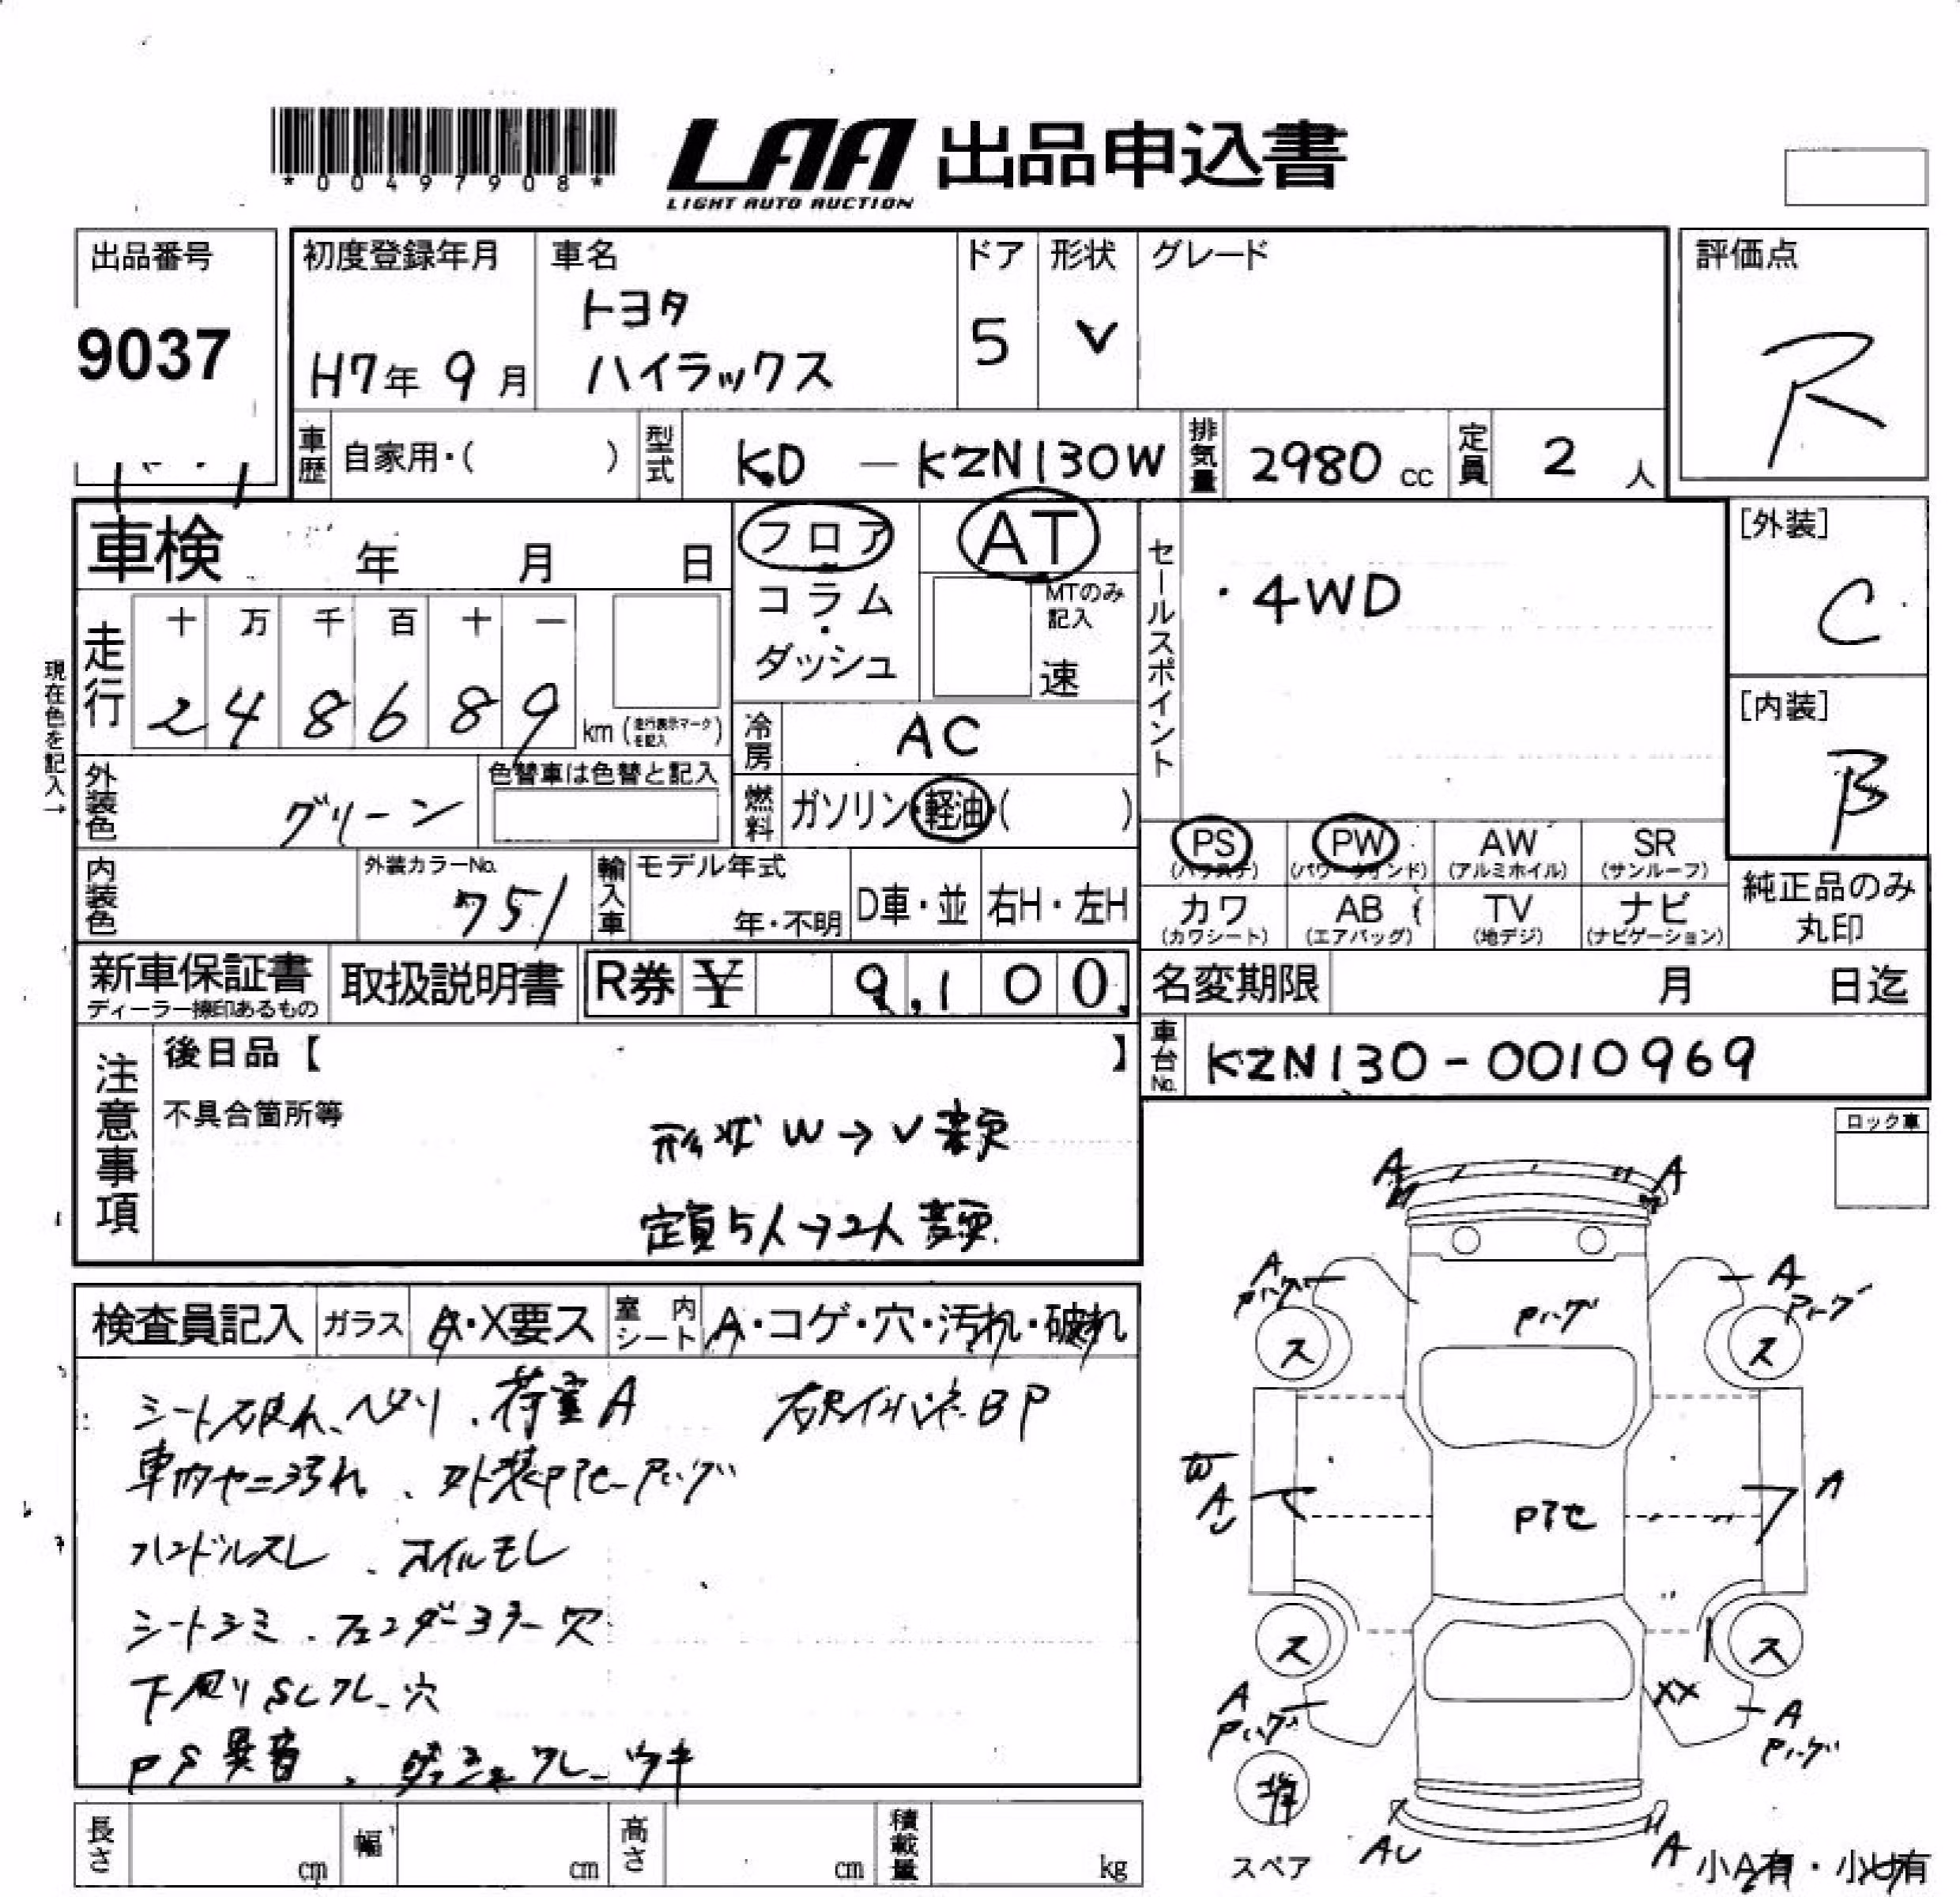 *00497908*
LAA 出品申込書
LIGHT AUTO AUCTION
出品番号
9037
初度登録年月
H7年 9月
車名
トヨタ
ハイラックス
ドア
5
形状
V
グレード
評価点
R
車歴 自家用・( )
型式 KD — KZN130W
排気量 2980 cc
定員 2 人
車検 年 月 日
フロア
コラム
・
ダッシュ
AT
MTのみ
記入
速
セールスポイント
・4WD
[外装]
C
[内装]
B
現在色を記入→
走行
十 万 千 百 十 一
2 4 8 6 8 9 km (走行表示マークを記入)
冷房 AC
外装色 グリーン
色替車は色替と記入
燃料 ガソリン・軽油・( )
PS PW AW SR
(パワステ) (パワーウインド) (アルミホイル) (サンルーフ)
内装色
外装カラーNo.
751
輸入車
モデル年式
年・不明
D車・並
右H・左H
カワ AB TV ナビ
(カワシート) (エアバッグ) (地デジ) (ナビゲーション)
純正品のみ
丸印
新車保証書
ディーラー捺印あるもの
取扱説明書
R券 ¥ 9,100.
名変期限 月 日迄
車台No. KZN130-0010969
注意事項
後日品【 】
不具合箇所等
形状 W→V 変更
定員5人→2人 変更
ロック車
検査員記入
ガラス A・X要ス
室内シート A・コゲ・穴・汚れ・破れ
シート破れ、ヘタリ、荷室A
車内ヤニ汚れ、外装Pアセ-Pハゲ
ハンドルスレ、オイルモレ
シートシミ、フェンダーミラー穴
下廻りSCワレ-穴
PS異音、ダッシュワレ-ウキ
A A
A
Pハゲ
A
Pハゲ
Pハゲ
ス ス
W
A
U
A
Pアセ
ス ス
XX
A
Pハゲ
A
Pハゲ
スペア
AU
A
小A有・小U有
長さ cm
幅 cm
高さ cm
積載量 kg